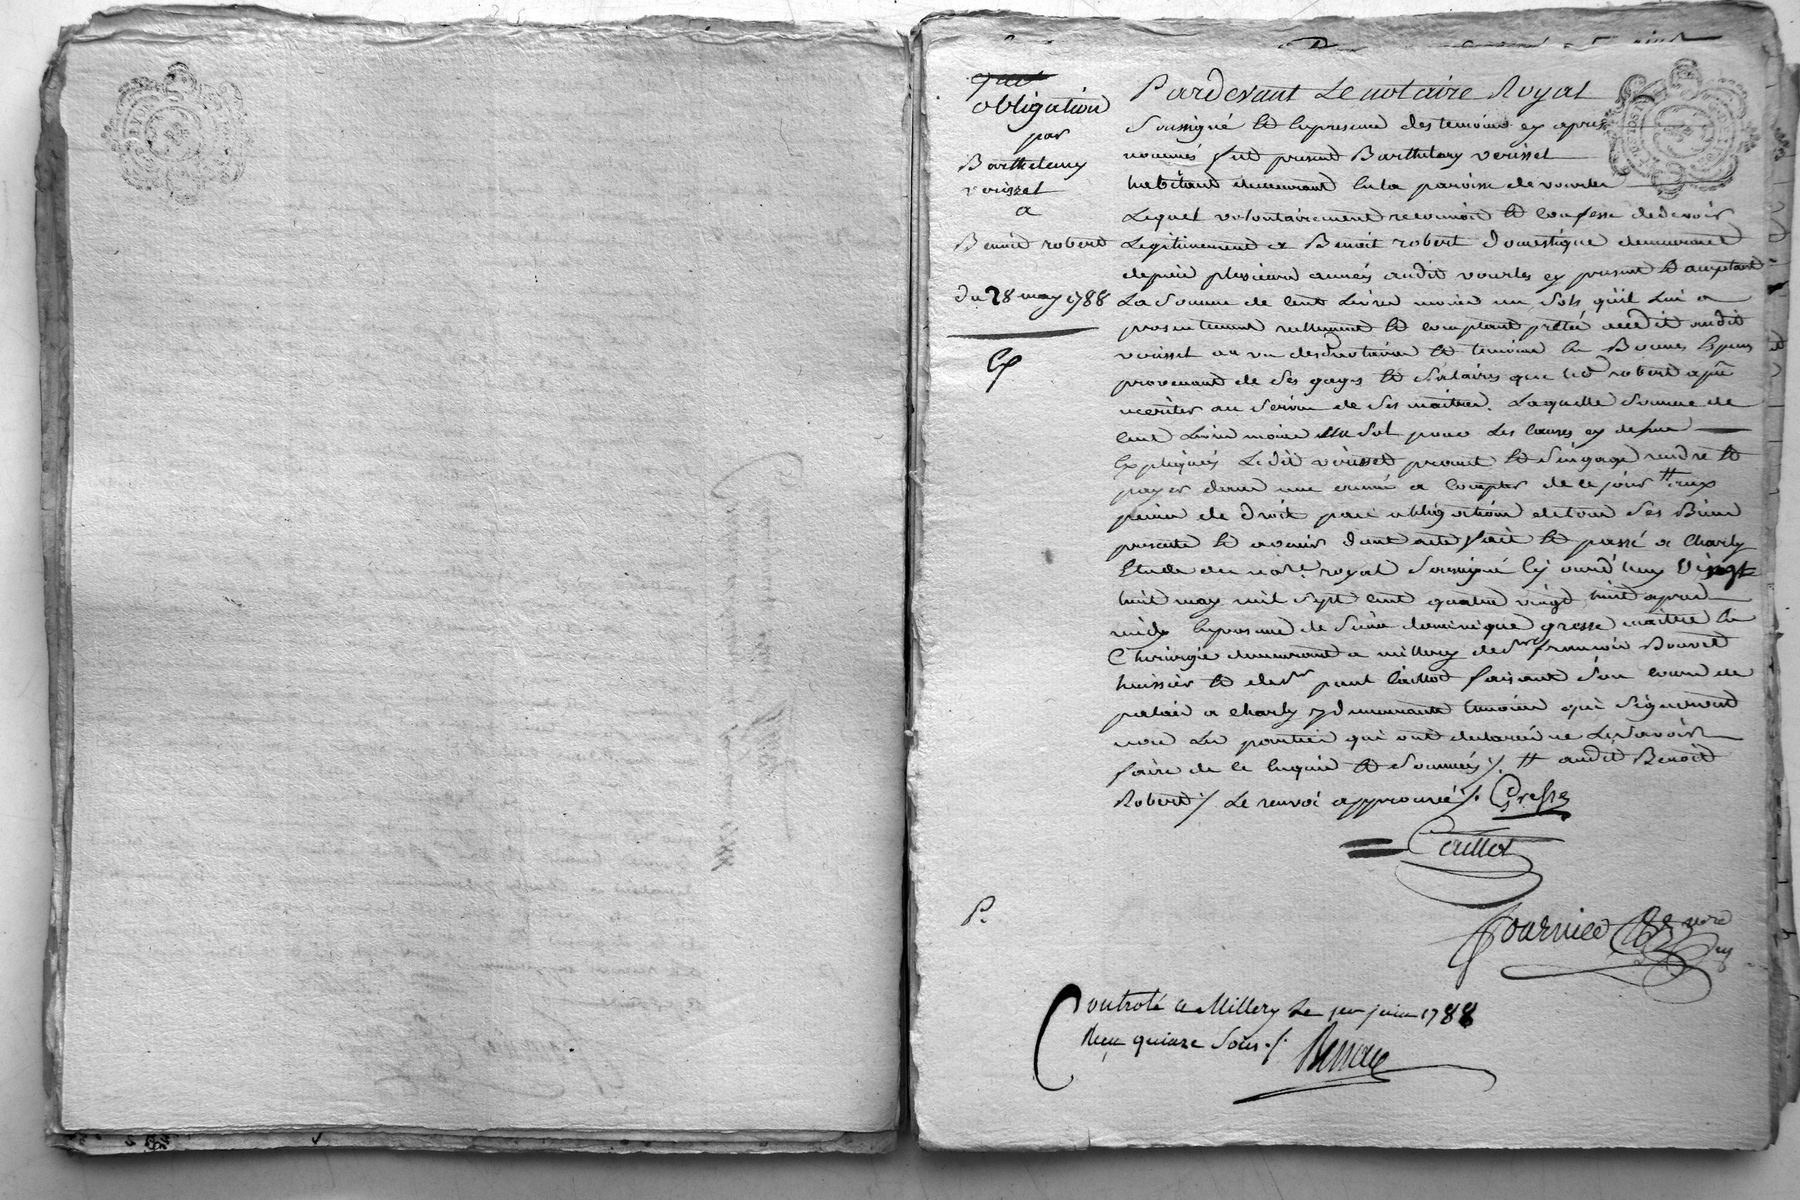 obligation
par
Barthelemy
verisset
a
Benoit robert
du 28 may 1788
Pardevant Le notaire Royal
Soussigné Et En presence des temoins cy apres
nommés fut present Barthelemy verisset
habitant demeurant En la paroisse de vourles
Lequel volontairement reconnoit Et Confesse de devoir
Legitimement a Benoit robert domestique demeurant
depuis plusieurs années audit vourles cy present Et acceptant
La Somme de Cent Livres moins un Sols qu'il Lui a
presentement reellement Et Comptant pretée audit
verisset au vu des notaire Et temoins En Bonnes Especes
provenant de Ses gages Et Salaires que led robert a pu
meriter au Service de Ses maitres. Laquelle Somme de
Cent Livres moins un Sol pour Les Causes cy dessus
Expliqués Ledit verisset promet Et S'engage rendre Et
payer dans une année a Compter de Ce jour # aux
peine de Droit par obligation de tous Ses Biens
presents Et avenir dont acte fait Et passé a Charly
Etude du no.re royal Soussigné Cejourd'huy Vingt
huit may mil Sept Cent quatre vingt huit apres
midy En presence de Sieur dominique gresse maitre En
Chirurgie demeurant a millery de Sr françois Bouvet
huissier Et de Sr paul Caillot faisant Son Cours de
palais a Charly y demeurants temoins qui Signeront
non Les parties qui ont declarée ne Le Savoir
faire de Ce Enquis Et Sommés ./. # audit Benoit
Robert ./. Le renvoi approuvée ./. Gresse
Caillot
P.
Fournier
Controlé a Millery Le 1er juin 1788
Reçu quinze Sous ./.